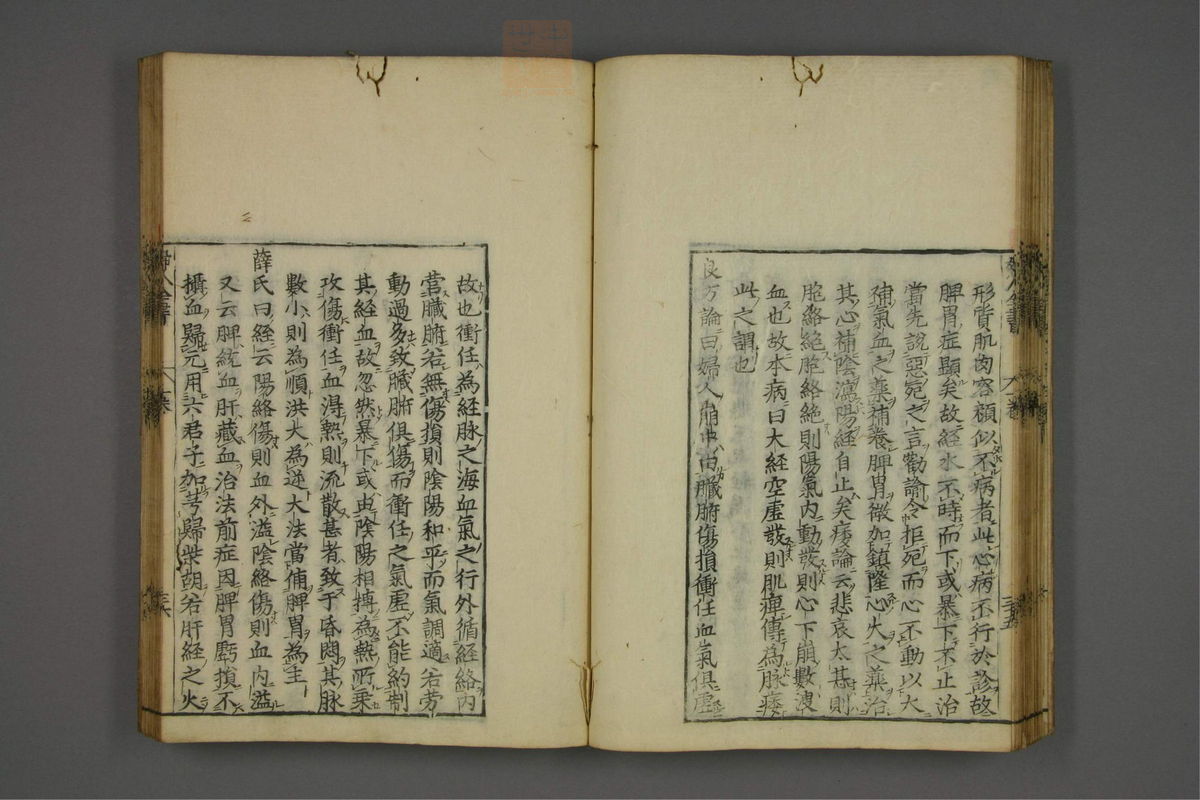 形質肌肉容顏似不病者此心病不行於診故
脾胃症顯矣故經水不時而下或暴下不止治
當先說惡宛之言勸諭令拒宛而心不動以大
補氣血之藥補養脾胃微加鎮隆心火之藥治
其心補陰瀉陽經自止矣痿論云悲哀太甚則
胞絡絕胞絡絕則陽氣内動發則心下崩數溲
血也故本病曰大經空虛發則肌痺傳為脉痿
此之謂也
良方論曰婦人崩中由臟腑傷損衝任血氣俱虛
故也衝任為經脉之海血氣之行外循經絡内
營臟腑若無傷損則陰陽和乎而氣調適若労
動過多致臟腑俱傷而衝任之氣虛不能約制
其經血故忽然暴下或由陰陽相搏為熱所乗
攻傷衝任血得熱則流散甚者致于昏悶其脉
數小則為順洪大為逆大法當補脾胃為主
薛氏曰經云陽絡傷則血外溢陰絡傷則血内溢
又云脾統血肝藏血治法前症因脾胃虧損不
攝血歸元用六君子加芎歸柴胡若肝經之火